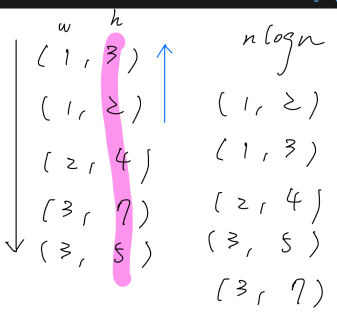 w h
(1, 3)
(1, 2)
(2, 4)
(3, 7)
(3, 5)
nlogn
(1, 2)
(1, 3)
(2, 4)
(3, 5)
(3, 7)